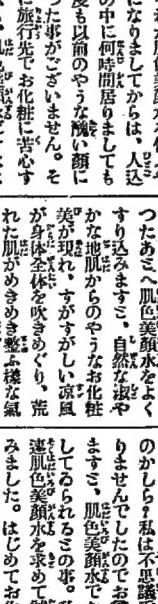 になりましてからは、人込
の中に何時間居りましても
度も以前のやうな醜い顔に
つた事がございません。そ
に旅行先でお化粧に苦心す
つたあとへ肌色美顔水をよく
すり込みますと、自然な淑や
かな地肌からのやうなお化粧
美が現れ、すがすがしい凉風
が身体全体を吹きめぐり、荒
れた肌がめきめき整ふ様な氣
のかしら？私は不思議
りませんでしたのでお
ますと、肌色美顔水で
してゐられるとの事。
速肌色美顔水を求めて
みました。はじめてお